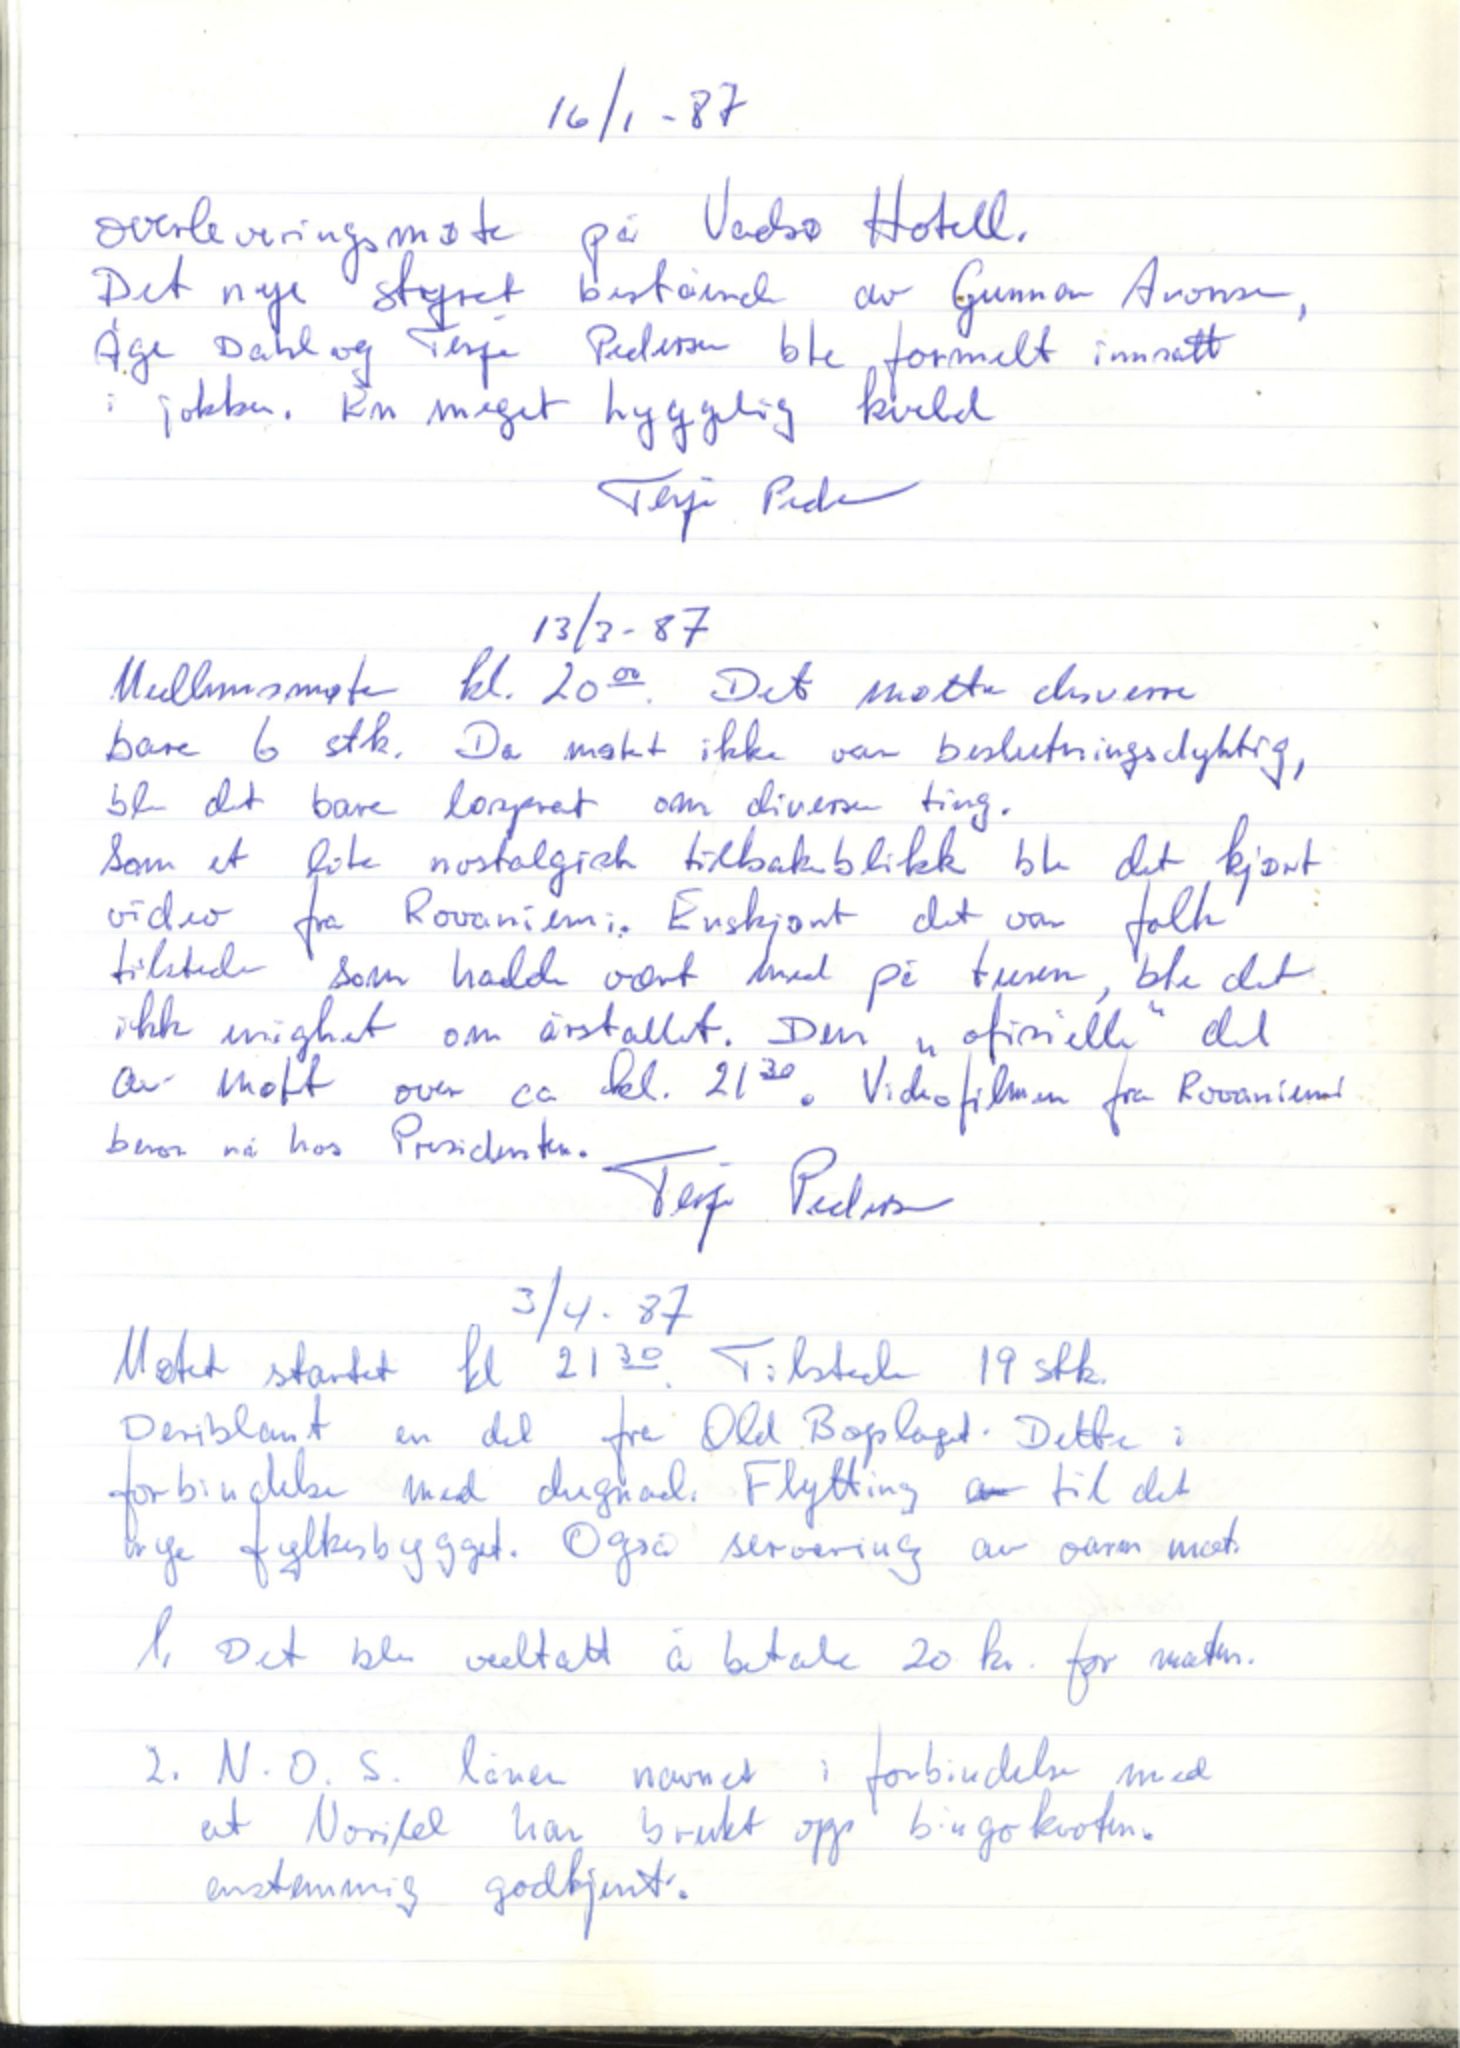 16/1 - 87
overleveringsmøte på Vadsø Hotell.
Det nye styret bestående av Gunnar Aronsen,
Åge Dahl og Terje Pedersen ble formelt innsatt
i jobben. En meget hyggelig kveld
Terje Peder
13/3 - 87
Medlemsmøte kl. 20 00. Det møtte desverre
bare 6 stk. Da møtet ikke var beslutningsdyktig,
ble det bare løsprat om diverse ting.
Som et lite nostalgisk tilbakeblikk ble det kjørt
video fra Rovaniemi. Enskjønt det var folk
tilstede som hadde vært med på turen, ble det
ikke enighet om årstallet. Den „ofisielle" del
av møtet over ca kl. 21 30. Videofilmen fra Rovaniemi
beror nå hos Presidenten.
Terje Pedersen
3/4 - 87
Møtet startet kl 21 30. Tilstede 19 stk.
Deriblant en del fra Old Boyslaget. Dette i
forbindelse med dugnad. Flytting av til det
nye fylkesbygget. Også servering av varm mat.
1. Det ble vedtatt å betale 20 kr. for maten.
2. N.O.S. låner navnet i forbindelse med
at Norild har brukt opp bingokvoten.
enstemmig godkjent.